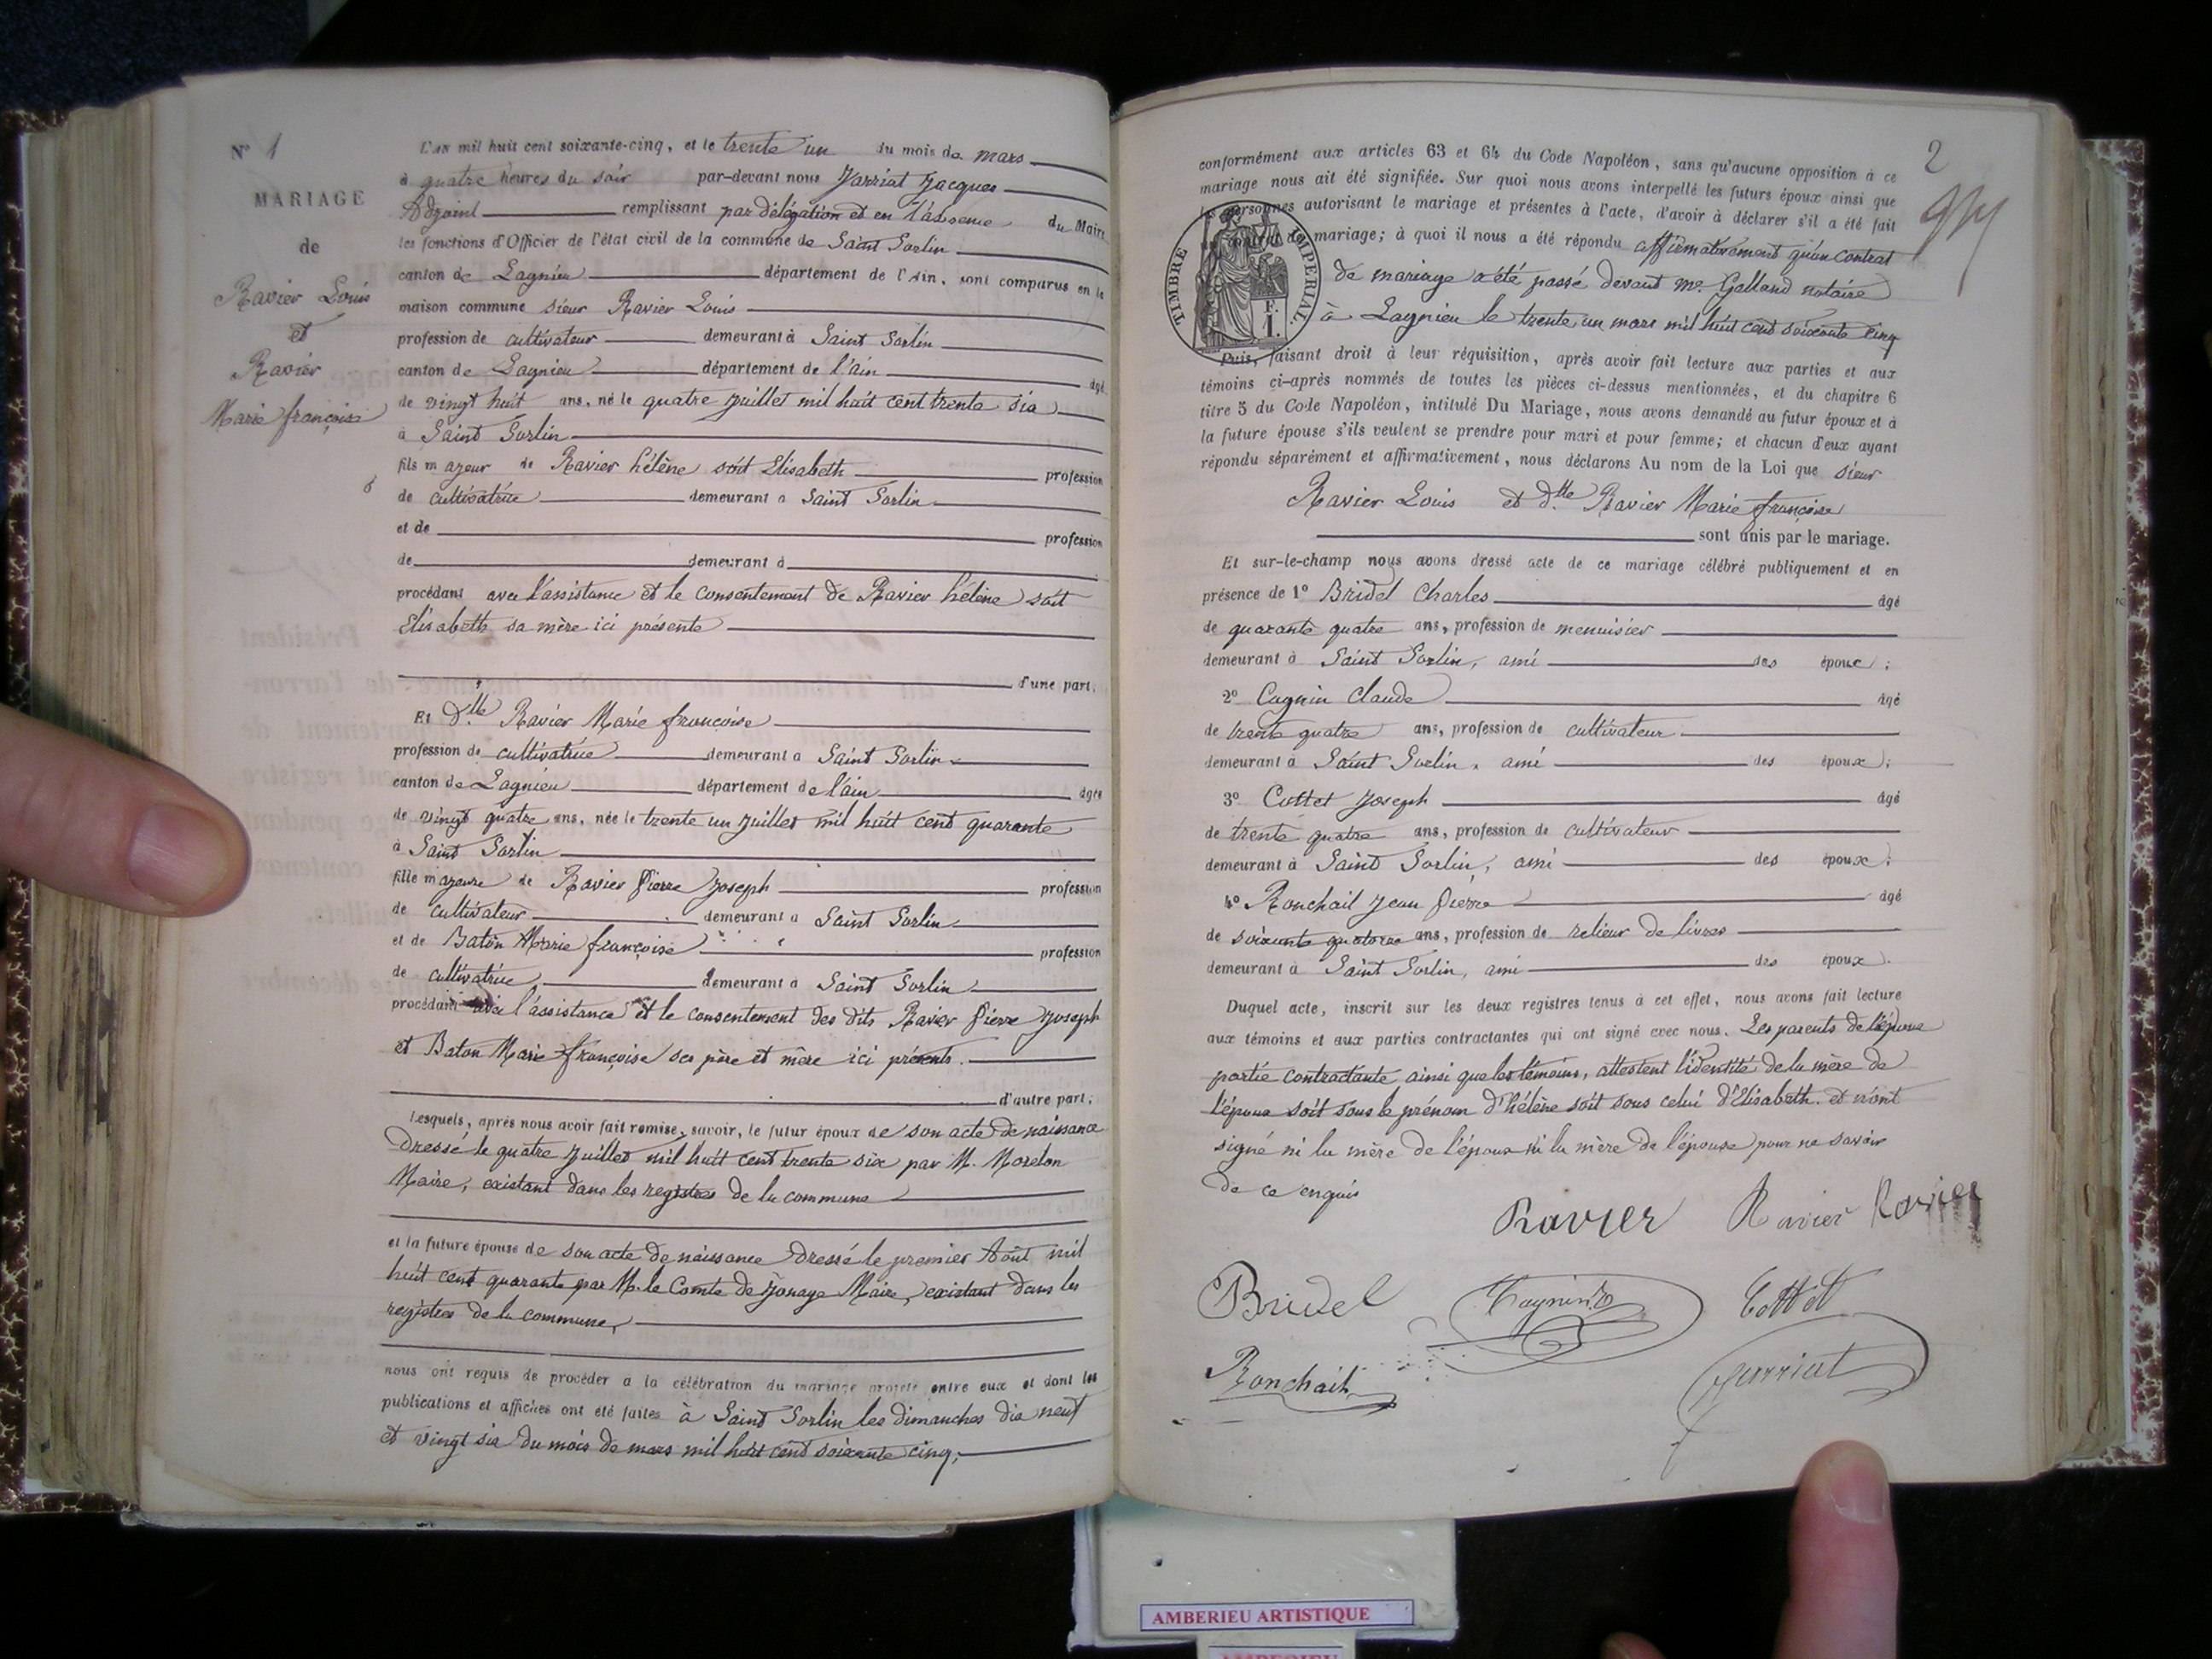 N° 1
MARIAGE
de
Ravier Louis
et
Ravier
Marie françoise
L'an mil huit cent soixante-cinq, et le trente un du mois de mars
à quatre heures du soir par-devant nous Jarriat Jacques
Adjoint remplissant par délégation et en l'absence du Maire
les fonctions d'Officier de l'état civil de la commune de Saint Sorlin
canton de Lagnieu département de l'Ain, sont comparus en la
maison commune sieur Ravier Louis
profession de cultivateur demeurant à Saint Sorlin
canton de Lagnieu département de l'ain âgé
de vingt huit ans, né le quatre juillet mil huit cent trente six
à Saint Sorlin
fils majeur de Ravier hélène soit Elisabeth profession
de cultivatrice demeurant à Saint Sorlin
et de profession
de demeurant à
procédant avec l'assistance et le consentement de Ravier hélène soit
Elisabeth sa mère ici présente
d'une part,
Et Dlle Ravier Marie françoise
profession de cultivatrice demeurant à Saint Sorlin
canton de Lagnieu département de l'ain âgée
de vingt quatre ans, née le trente un juillet mil huit cent quarante
à Saint Sorlin
fille majeure de Ravier Pierre Joseph profession
de cultivateur demeurant à Saint Sorlin
et de Baton Marie françoise profession
de cultivatrice demeurant à Saint Sorlin
procédant avec l'assistance et le consentement des dits Ravier Pierre Joseph
et Baton Marie françoise ses père et mère ici présents.
d'autre part;
Lesquels, après nous avoir fait remise, savoir, le futur époux de son acte de naissance
dressé le quatre juillet mil huit cent trente six par M. Morelon
Maire, existant dans les registres de la commune
et la future épouse de son acte de naissance dressé le premier Août mil
huit cent quarante par M. le Comte de Jonage Maire, existant dans les
registres de la commune,
nous ont requis de procéder à la célébration du mariage projeté entre eux et dont les
publications et affiches ont été faites à Saint Sorlin les dimanches dix neuf
et vingt six du mois de mars mil huit cent soixante cinq,
2
conformément aux articles 63 et 64 du Code Napoléon, sans qu'aucune opposition à ce
mariage nous ait été signifiée. Sur quoi nous avons interpellé les futurs époux ainsi que
les personnes autorisant le mariage et présentes à l'acte, d'avoir à déclarer s'il a été fait
contrat de mariage; à quoi il nous a été répondu affirmativement qu'un contrat
de mariage a été passé devant me. Galland notaire
à Lagnieu le trente un mars mil huit cent soixante cinq
TIMBRE IMPERIAL.
F.
1.
Puis, faisant droit à leur réquisition, après avoir fait lecture aux parties et aux
témoins ci-après nommés de toutes les pièces ci-dessus mentionnées, et du chapitre 6
titre 5 du Code Napoléon, intitulé Du Mariage, nous avons demandé au futur époux et à
la future épouse s'ils veulent se prendre pour mari et pour femme; et chacun d'eux ayant
répondu séparément et affirmativement, nous déclarons Au nom de la Loi que sieur
Ravier Louis et dlle Ravier Marie françoise
sont unis par le mariage.
Et sur-le-champ nous avons dressé acte de ce mariage célébré publiquement et en
présence de 1° Bridel Charles âgé
de quarante quatre ans, profession de menuisier
demeurant à Saint Sorlin, ami des époux;
2° Cagnin Claude âgé
de trente quatre ans, profession de cultivateur
demeurant à Saint Sorlin, ami des époux;
3° Cottet Joseph âgé
de trente quatre ans, profession de cultivateur
demeurant à Saint Sorlin, ami des époux;
4° Ronchail Jean Pierre âgé
de soixante quatorze ans, profession de relieur de livres
demeurant à Saint Sorlin, ami des époux.
Duquel acte, inscrit sur les deux registres tenus à cet effet, nous avons fait lecture
aux témoins et aux parties contractantes qui ont signé avec nous. Les parents de l'épouse
partie contractante, ainsi que les témoins, attestent l'identité de la mère de
l'époux soit sous le prénom d'hélène soit sous celui d'Elisabeth. et n'ont
signé ni la mère de l'époux ni la mère de l'épouse pour ne savoir
de ce enquis
Ravier Ravier Ravier
Bridel Cagnin Cottet
Ronchail Jarriat
AMBERIEU ARTISTIQUE